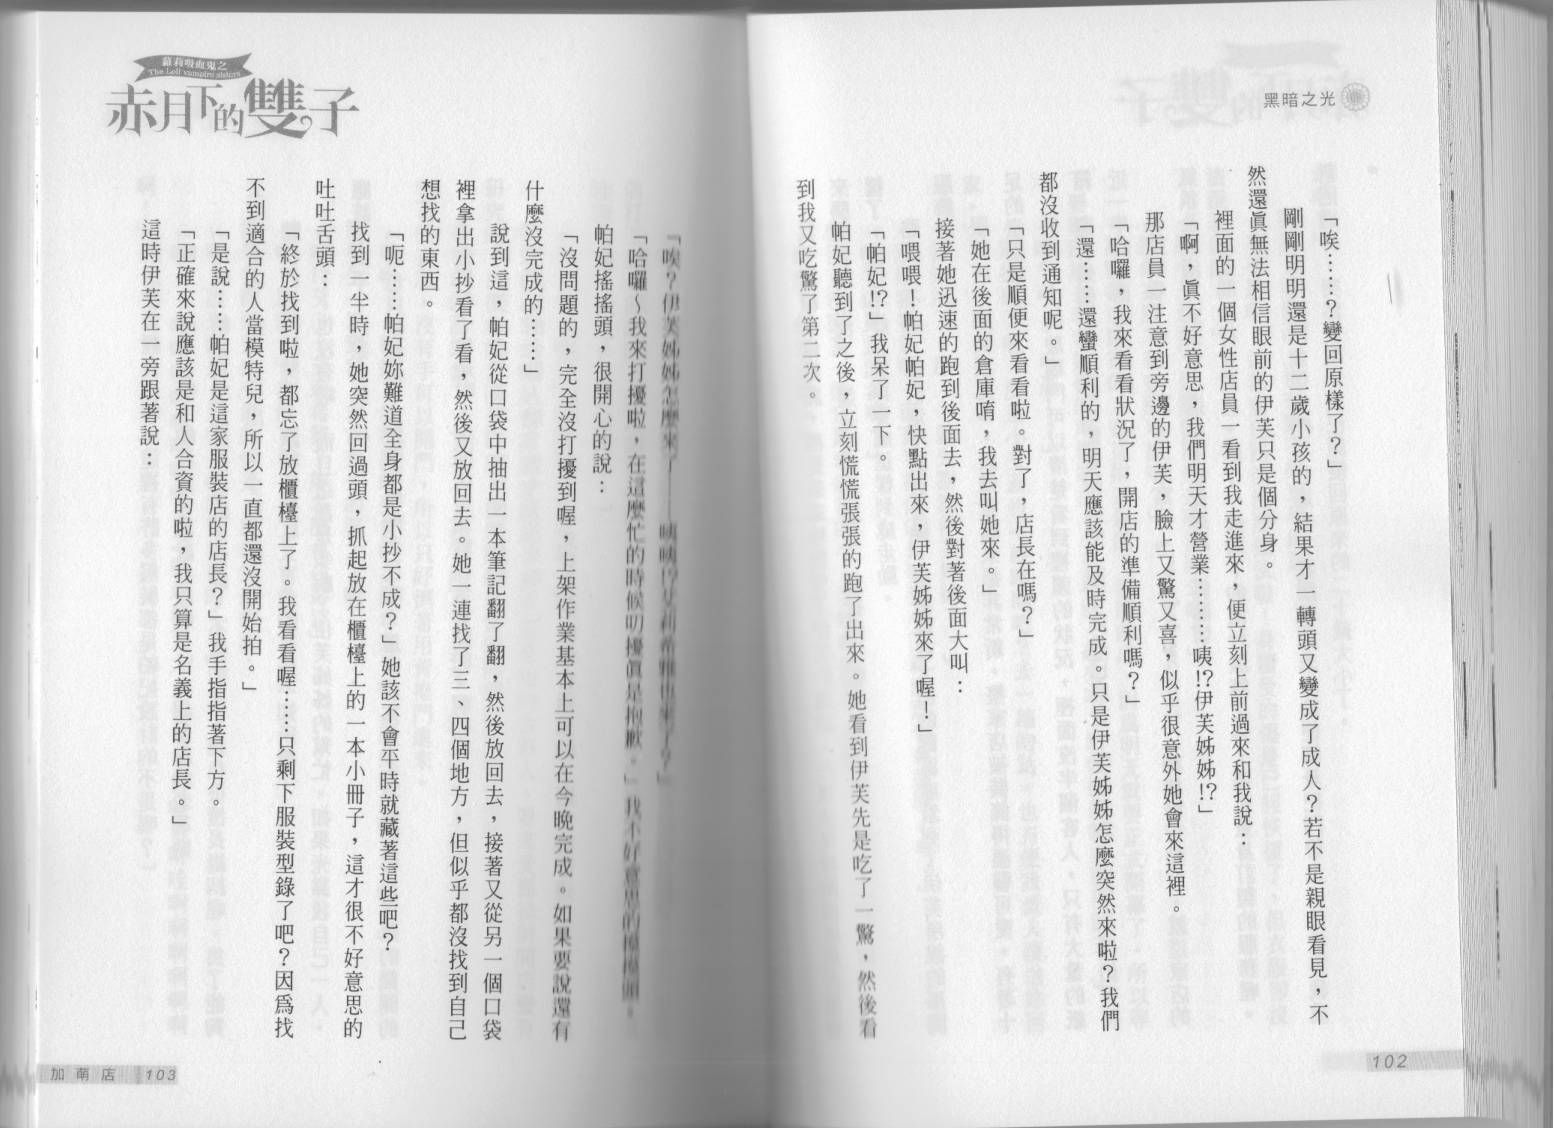 黑暗之光
「唉……？變回原樣了？」
剛剛明明還是十二歲小孩的，結果才一轉頭又變成了成人？若不是親眼看見，不
然還眞無法相信眼前的伊芙只是個分身。
裡面的一個女性店員一看到我走進來，便立刻上前過來和我說：
「啊，眞不好意思，我們明天才營業………咦!?伊芙姊姊!?」
那店員一注意到旁邊的伊芙，臉上又驚又喜，似乎很意外她會來這裡。
「哈囉，我來看看狀況了，開店的準備順利嗎？」
「還……還蠻順利的，明天應該能及時完成。只是伊芙姊姊怎麼突然來啦？我們
都沒收到通知呢。」
「只是順便來看看啦。對了，店長在嗎？」
「她在後面的倉庫唷，我去叫她來。」
接著她迅速的跑到後面去，然後對著後面大叫：
「喂喂！帕妃帕妃，快點出來，伊芙姊姊來了喔！」
「帕妃!?」我呆了一下。
帕妃聽到了之後，立刻慌慌張張的跑了出來。她看到伊芙先是吃了一驚，然後看
到我又吃驚了第二次。
102
蘿莉吸血鬼之
The Loli vampire sisters
赤月下的雙子
「唉？伊芙姊姊怎麼來了——咦咦!?艾莉希雅也來了？」
「哈囉～我來打擾啦，在這麼忙的時候叨擾眞是抱歉。」我不好意思的摸摸頭。
帕妃搖搖頭，很開心的說：
「沒問題的，完全沒打擾到喔，上架作業基本上可以在今晚完成。如果要說還有
什麼沒完成的……」
說到這，帕妃從口袋中抽出一本筆記翻了翻，然後放回去，接著又從另一個口袋
裡拿出小抄看了看，然後又放回去。她一連找了三、四個地方，但似乎都沒找到自己
想找的東西。
「呃……帕妃妳難道全身都是小抄不成？」她該不會平時就藏著這些吧？
找到一半時，她突然回過頭，抓起放在櫃檯上的一本小冊子，這才很不好意思的
吐吐舌頭：
「終於找到啦，都忘了放櫃檯上了。我看看喔……只剩下服裝型錄了吧？因爲找
不到適合的人當模特兒，所以一直都還沒開始拍。」
「是說……帕妃是這家服裝店的店長？」我手指指著下方。
「正確來說應該是和人合資的啦，我只算是名義上的店長。」
這時伊芙在一旁跟著說：
加萌店 103